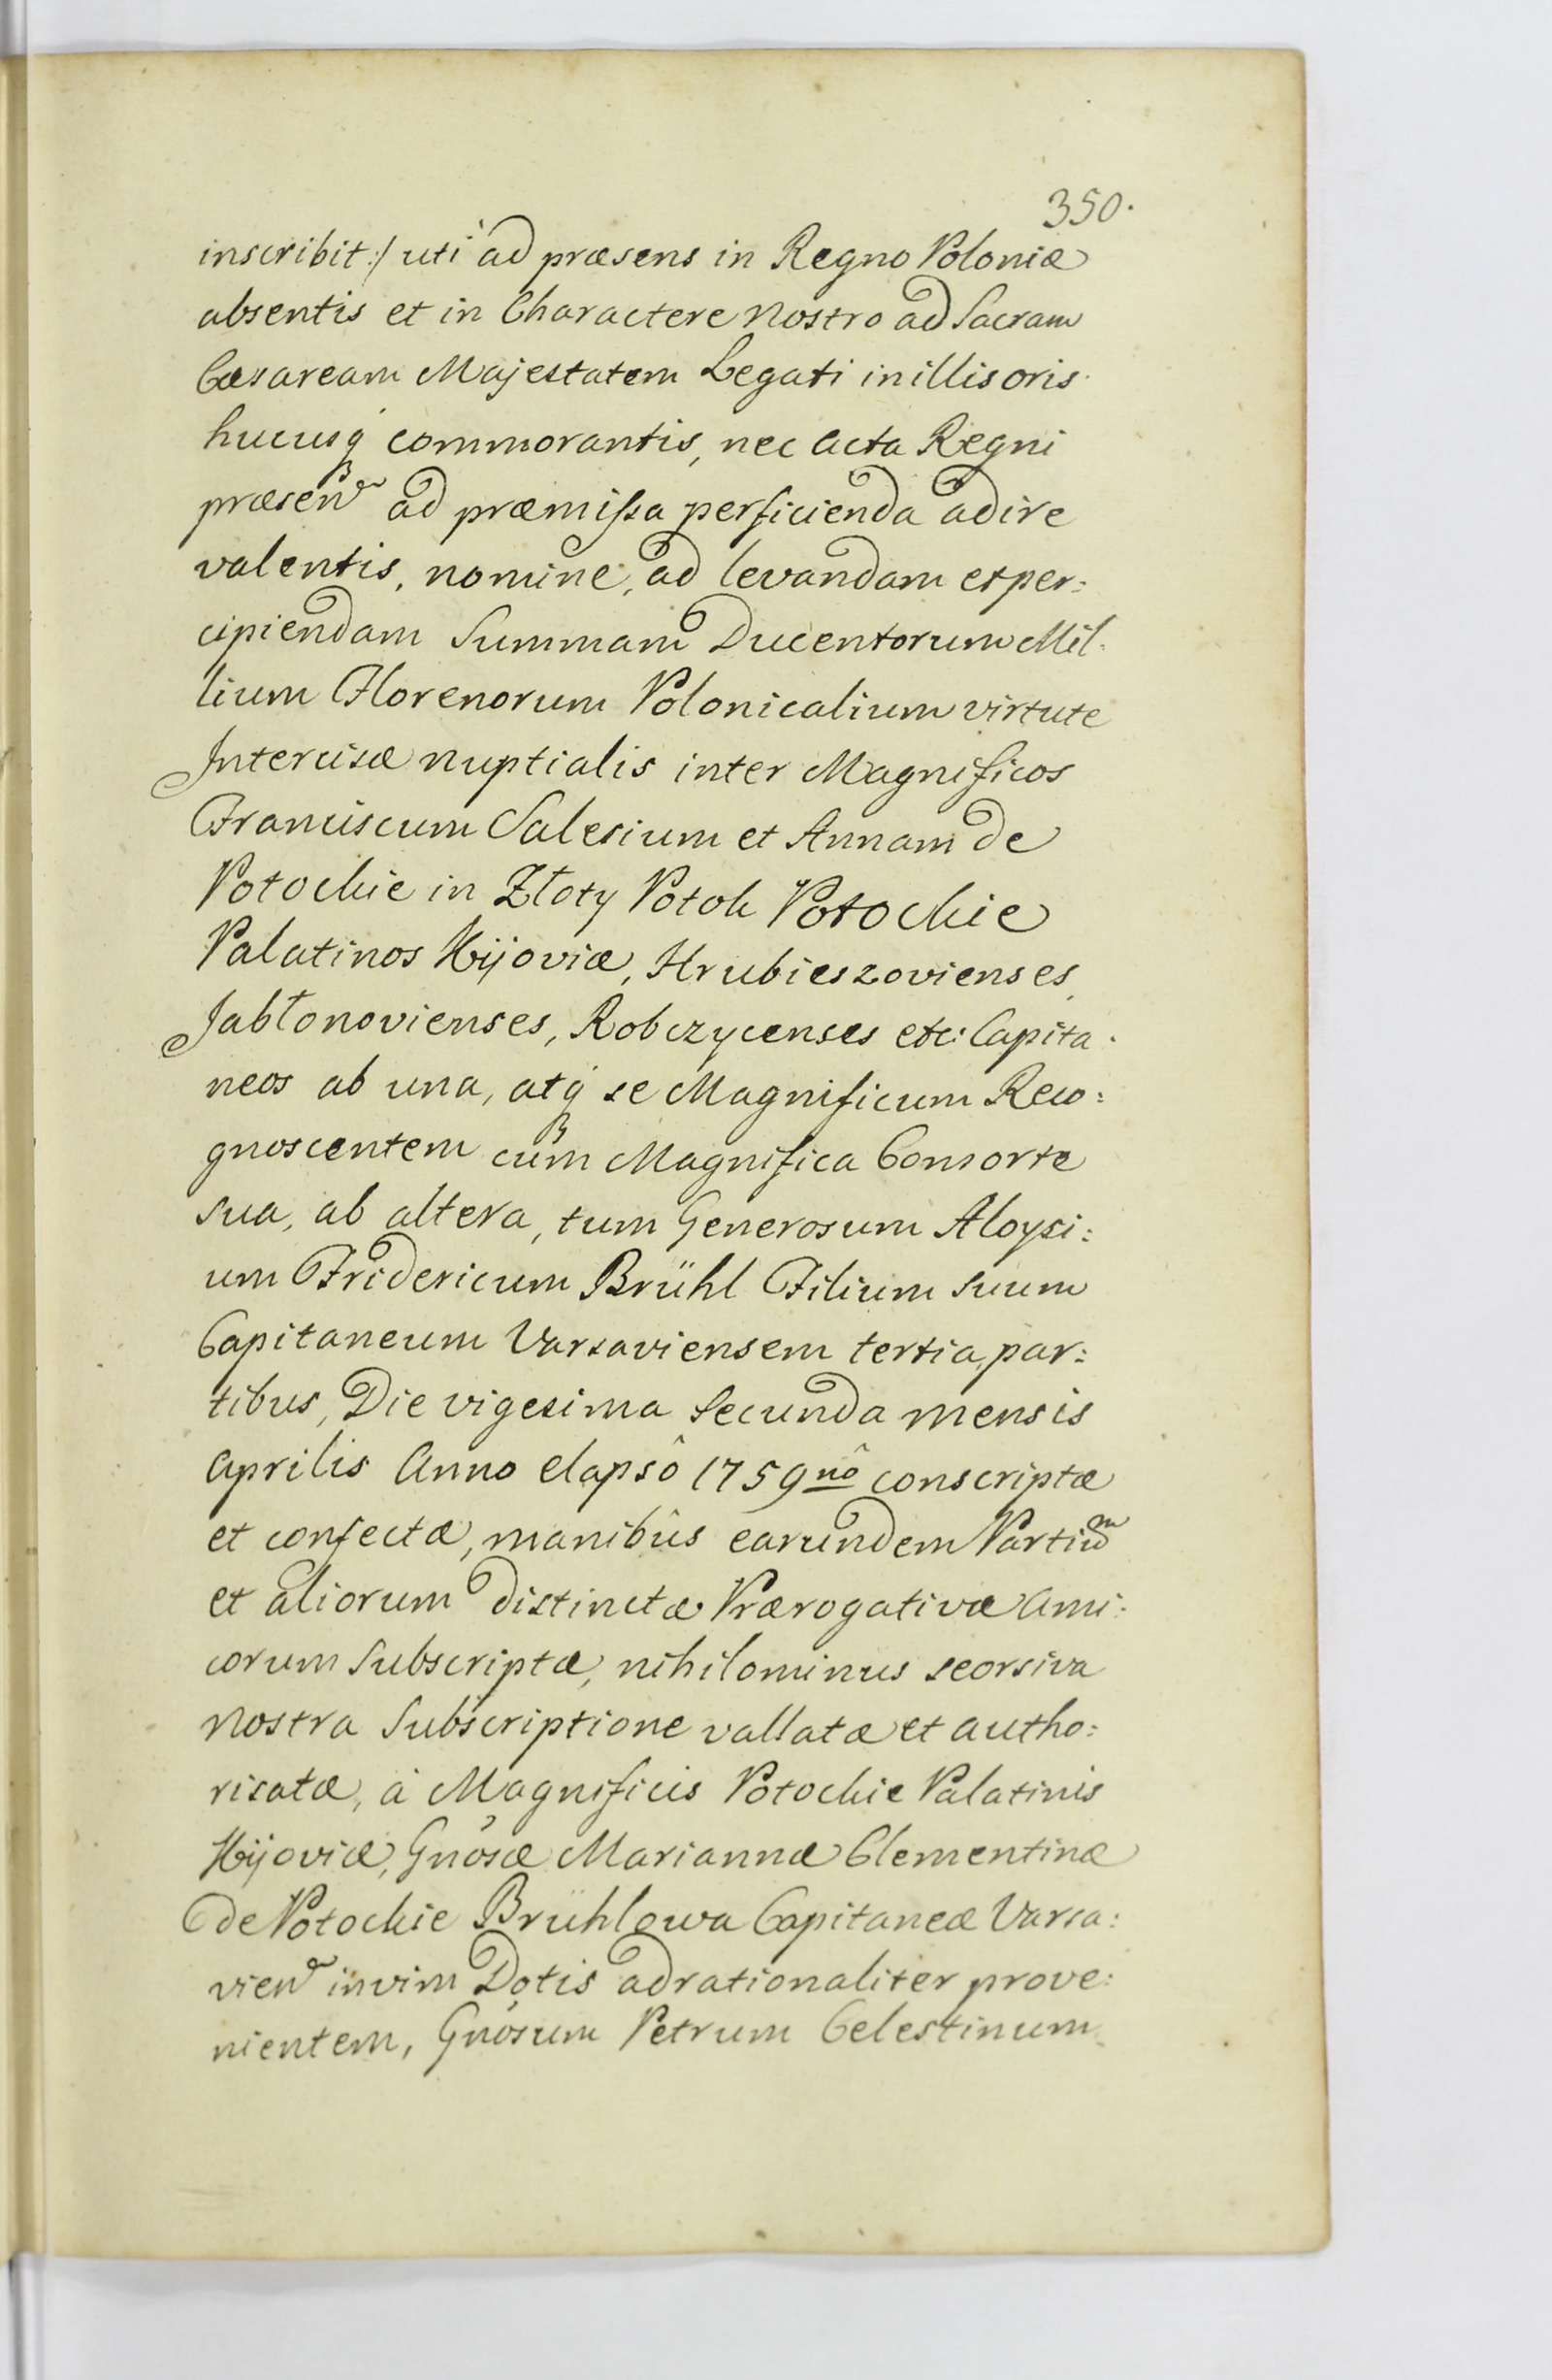 350.
inscribit:/ uti ad præsens in Regno Poloniæ
absentis et in Charactere Nostro ad Sacram
Cæsaream Majestatem Legati in illis oris
hucusq́ commorantis, nec acta Regni
præsen ad præmissa perficienda adire
valentis, nomine, ad levandam et per:
cipiendam Summam Ducentorum Mil:
lium Florenorum Polonicalium virtute
Intercisæ nuptialis inter Magnificos
Franciscum Salesium et Annam de
Potockie in Złoty Potok Potockie
Palatinos Kijoviæ, Hrubieszovienses,
Jabłonovienses, Robczycenses etc: Capita:
neos ab una, atq́ se Magnificum Reco:
gnoscentem cum Magnifica Consorte
sua, ab altera, tum Generosum Aloysi:
um Fridericum Brühl Filium suum
Capitaneum Varsaviensem tertia, par:
tibus, Die vigesima secunda mensis
Aprilis Anno elapsô 1759nô conscriptæ
et confectæ, manibûs earundem Partium
et aliorum distinctæ Prærogativæ Ami:
corum subscriptæ, nihilominus seorsiva
Nostra Subscriptione vallatæ et autho:
risatæ, à Magnificis Potockie Palatinis
Kijoviæ, Gnosæ Mariannæ Clementinæ
de Potockie Brühlowa Capitaneæ Varsa:
vien in vim Dotis adrationaliter prove:
nientem, Gnosum Petrum Celestinum